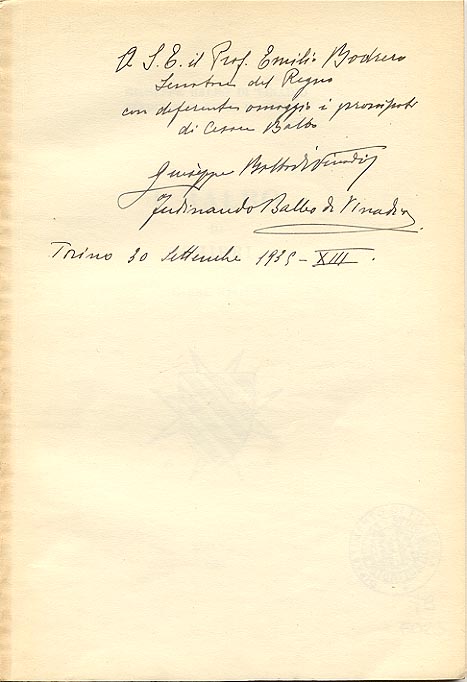 A S. E. il Prof. Emilio Bodrero
Senatore del Regno
con deferente omaggio i pronipoti
di Cesare Balbo
Giuseppe Balbo di Vinadio
Ferdinando Balbo di Vinadio
Torino 30 Settembre 1935 - XIII.